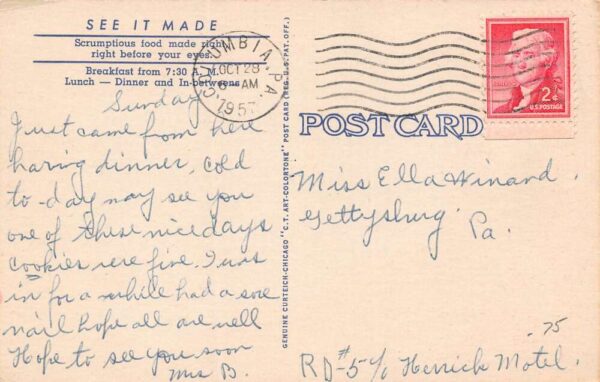 SEE IT MADE
Scrumptious food made right
right before your eyes.
Breakfast from 7:30 A. M.
Lunch — Dinner and In-betweens
COLUMBIA, PA.
OCT 28
AM
1957
2¢
U.S. POSTAGE
POST CARD
GENUINE CURTEICH-CHICAGO "C.T. ART-COLORTONE" POST CARD (REG. U.S. PAT. OFF.)
Sunday
Just came from here
having dinner, cold
to-day may see you
one of these nice days
cookies were fine. I was
in for a while had a sore
nail hope all are well
Hope to see you soon
Mrs B.
Miss Ella Winand.
Gettysburg
Pa.
RD #5 c/o Herrick Motel.
75